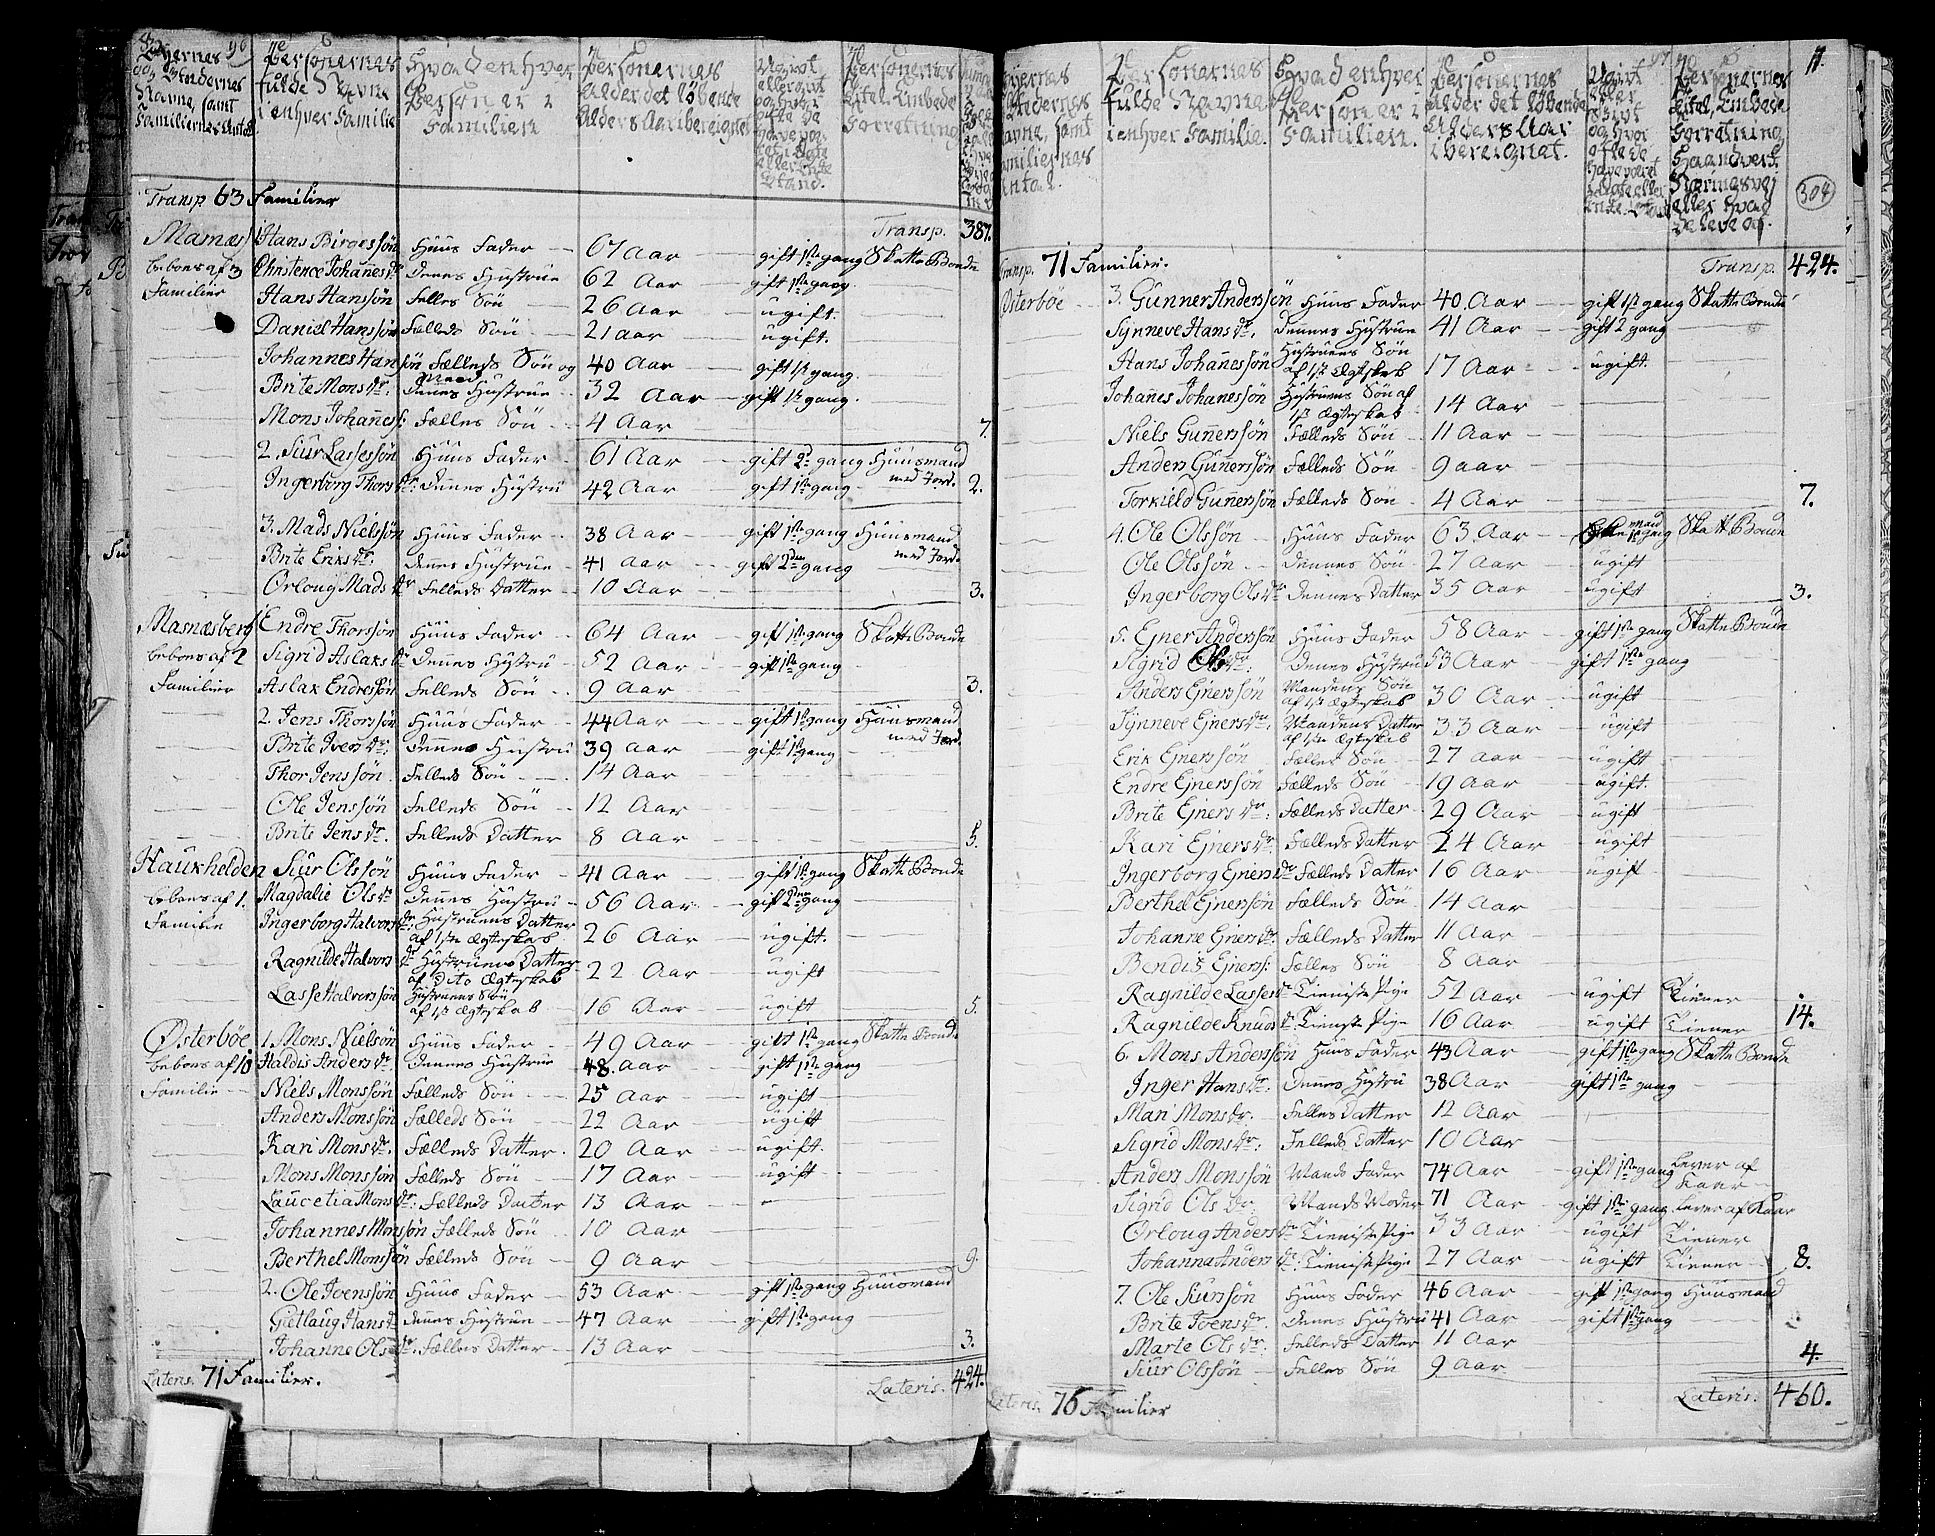 Byernes og Stædernes Navne, samt Familiernes Antal.
96
Personernes fulde Navne i enhver Familie
Hvad Enhver Person er i Familien
Personernes alder det løbende Alders Aar ibereignet
Personernes Titel, Embede Forretning
Transp 63 Familier
Transp. 387.
Masnæs 1 Hans Birgessøn Huus Fader 67 Aar gift 1ste gang Skatte Bonde
beboes af 3 Christence Johanes dr Denes Hustrue 62 Aar gift 1ste gang
Familier Hans Hanssøn Felles Søn 26 Aar ugift.
Daniel Hanssøn Fælleds Søn 21 aar ugift.
Johannes Hanssøn Fælleds Søn og Mand 40 Aar gift 1st gang.
Brite Mons dr. Dennes Hustrue 32 Aar gift 1st gang.
Mons Johaness: Fælles Søn 4 Aar 7.
2. Siur Lassessøn Huus Fader 61 Aar gift 2d gang Huusmand med Jord.
Ingerborg Thors dr: Dennes Hustru 42 Aar gift 1ste gang 2.
3. Mads Nielssøn Huus Fader 38 Aar gift 1ste gang Huusmand med Jord.
Brite Eriks dr. Denes Hustrue 41 Aar gift 2den gang
Orloug Mads dr Felleds Datter 10 Aar 3.
Masnæsberg 1 Endre Thorssøn Huus Fader 64 Aar gift 1ste gang Skatte Bonde
beboes af 2 Sigrid Aslaks dr Dennes Hystru 52 Aar gift 1ste gang
Familier Aslax Endressøn Felleds Søn 9 Aar 3.
2. Jens Thorssøn Huus Fader 44 Aar gift 1ste gang Huusmand med Jord.
Brite Ivers dr: Dennes Hustru 39 Aar gift 1st gang
Thor Jenssøn Felleds Søn 14 Aar
Ole Jenssøn Felleds Søn 12 Aar
Brite Jens dr. Felleds Datter 8 Aar 5.
Hauxhelden Siur Olssøn Huus Fader 41 Aar gift 1ste gang Skatte Bonde
beboes af 1. Magdalie Ols dr Denes Hustru 56 Aar gift 2den gang
Familie Ingerborg Halvors dr: Hustruens Datter af 1ste Ægteskab 26 Aar ugift.
Ragnilde Halvors dr Hustruens Datter af Dito Ægteskab 22 Aar ugift
Lasse Halvorssøn Hustruens Søn af 1st Ægteskab 16 Aar ugift 5.
Østerbøe 1. Mons Nielsøn Huus Fader 49 Aar gift 1ste gang Skatte Bonde
beboes af 10 Haldis Anders dr Dennes Hustrue 48 aar gift 1ste gang
Familie Niels Monssøn Fælleds Søn 25 Aar ugift
Anders Monssøn Fælleds Søn 22 Aar ugift
Kari Mons dr. Fælleds Datter. 20 Aar ugift.
Mons Monssøn Fælleds Søn 17 Aar ugift
Laucetia Mons dr: Fælleds Datter 13 Aar
Johannes Monssøn Fælleds Søn 10 Aar
Berthel Monssøn Fælleds Søn 9 Aar 9.
2. Ole Ivenssøn Huus Fader 53 Aar gift 1ste gang Huusmand
Gietlaug Hans dr Denes Hustrue 47 Aar gift 1ste gang
Johanne Ols dr. Fælleds Datter 13 Aar 3.
Lateris. 71 Familier.
Lateris. 424.
Personernes fulde Navne i enhver Familie.
Hvad Enhver Person er i Familien.
Personernes alder det løbende Alders Aar ibereignet.
Personernes Titel, Embede Forretning, Haandverk Næringsvej eller hvad De leve af.
97
304
Transp. 71 Familier.
Transp. 424.
Østerbøe 3. Gunner Anderssøn Huus Fader 40 Aar gift 1st gang Skatte Bonde
Synneve Hans dr. Dennes Hystrue 41 Aar gift 2 gang
Hans Johanessøn Hustruens Søn af 1st Ægteskab 17 Aar ugift.
Johanes Johanessøn Hustruens Søn af 1st Ægteskab 14 Aar
Niels Gunerssøn Fælleds Søn 11 Aar
Anders Gunerssøn Fælleds Søn 9 aar
Torkield Gunersøn Fælleds Søn 4 Aar 7.
4. Ole Olssøn Huus Fader 63 Aar Enkemand 1ste gang Skatt Bonde
Ole Olssøn Dennes Søn 27 Aar ugift
Ingerborg Ols dr Dennes Datter 35 Aar ugift 3.
5. Ejner Anderssøn Huus Fader 58 Aar gift 1ste gang Skatte Bonde
Sigrid Ols dr: Denes Hystru 53 Aar gift 1ste gang
Anders Ejnerssøn Mandens Søn af 1st Ægteskab 30 Aar ugift
Synneve Ejners dr: Mandens Datter af 1ste Ægteskab 33 Aar ugift
Erik Ejnerssøn Fælles Søn 27 Aar ugift
Endre Ejnerssøn Fælleds Søn 19 Aar ugift.
Brite Ejners dr: Fælleds Datter 29 Aar ugift
Kari Ejners dr. Fælleds Datter 24 Aar ugift
Ingerborg Ejners dr Fælleds Datter 16 Aar ugift
Berthel Ejnersøn Fælleds Søn 14 Aar
Johanne Ejners dr. Fælleds Datter 11 Aar
Bendis Ejners: Fælles Søn 8 Aar
Ragnilde Lasses dr Tieniste Pige 52 Aar ugift Tiener
Ragnilde Knuds dr. Tieniste Pige 16 Aar ugift Tiener 14.
6. Mons Anderssøn Huus Fader 43 Aar gift 1ste gang Skatte Bonde
Inger Hans dr. Denes Hystru 38 Aar gift 1ste gang
Mari Mons dr. Felles Datter 12 Aar
Sigrid Mons dr: Felleds Datter 10 Aar
Anders Monssøn Mands Fader 74 Aar gift 1ste gang Lever af Kaar
Sigrid Ols dr. Mands Moder 71 Aar gift 1ste gang Lever af Kaar
Orloug Anders dr Tieniste Pige 33 Aar ugift Tiener
Johanna Anders dr: Tieniste Pige 27 Aar ugift Tiener 8.
7. Ole Siurssøn Huus Fader 46 Aar gift 1ste gang Huusmand
Brite Ivens dr. Denes Hustru 41 Aar gift 1ste gang
Marte Ols dr Felleds Datter 11 Aar
Siur Olssøn Felles Søn 9 Aar 4.
Lateris. 75 Familier
Lateris. 460.